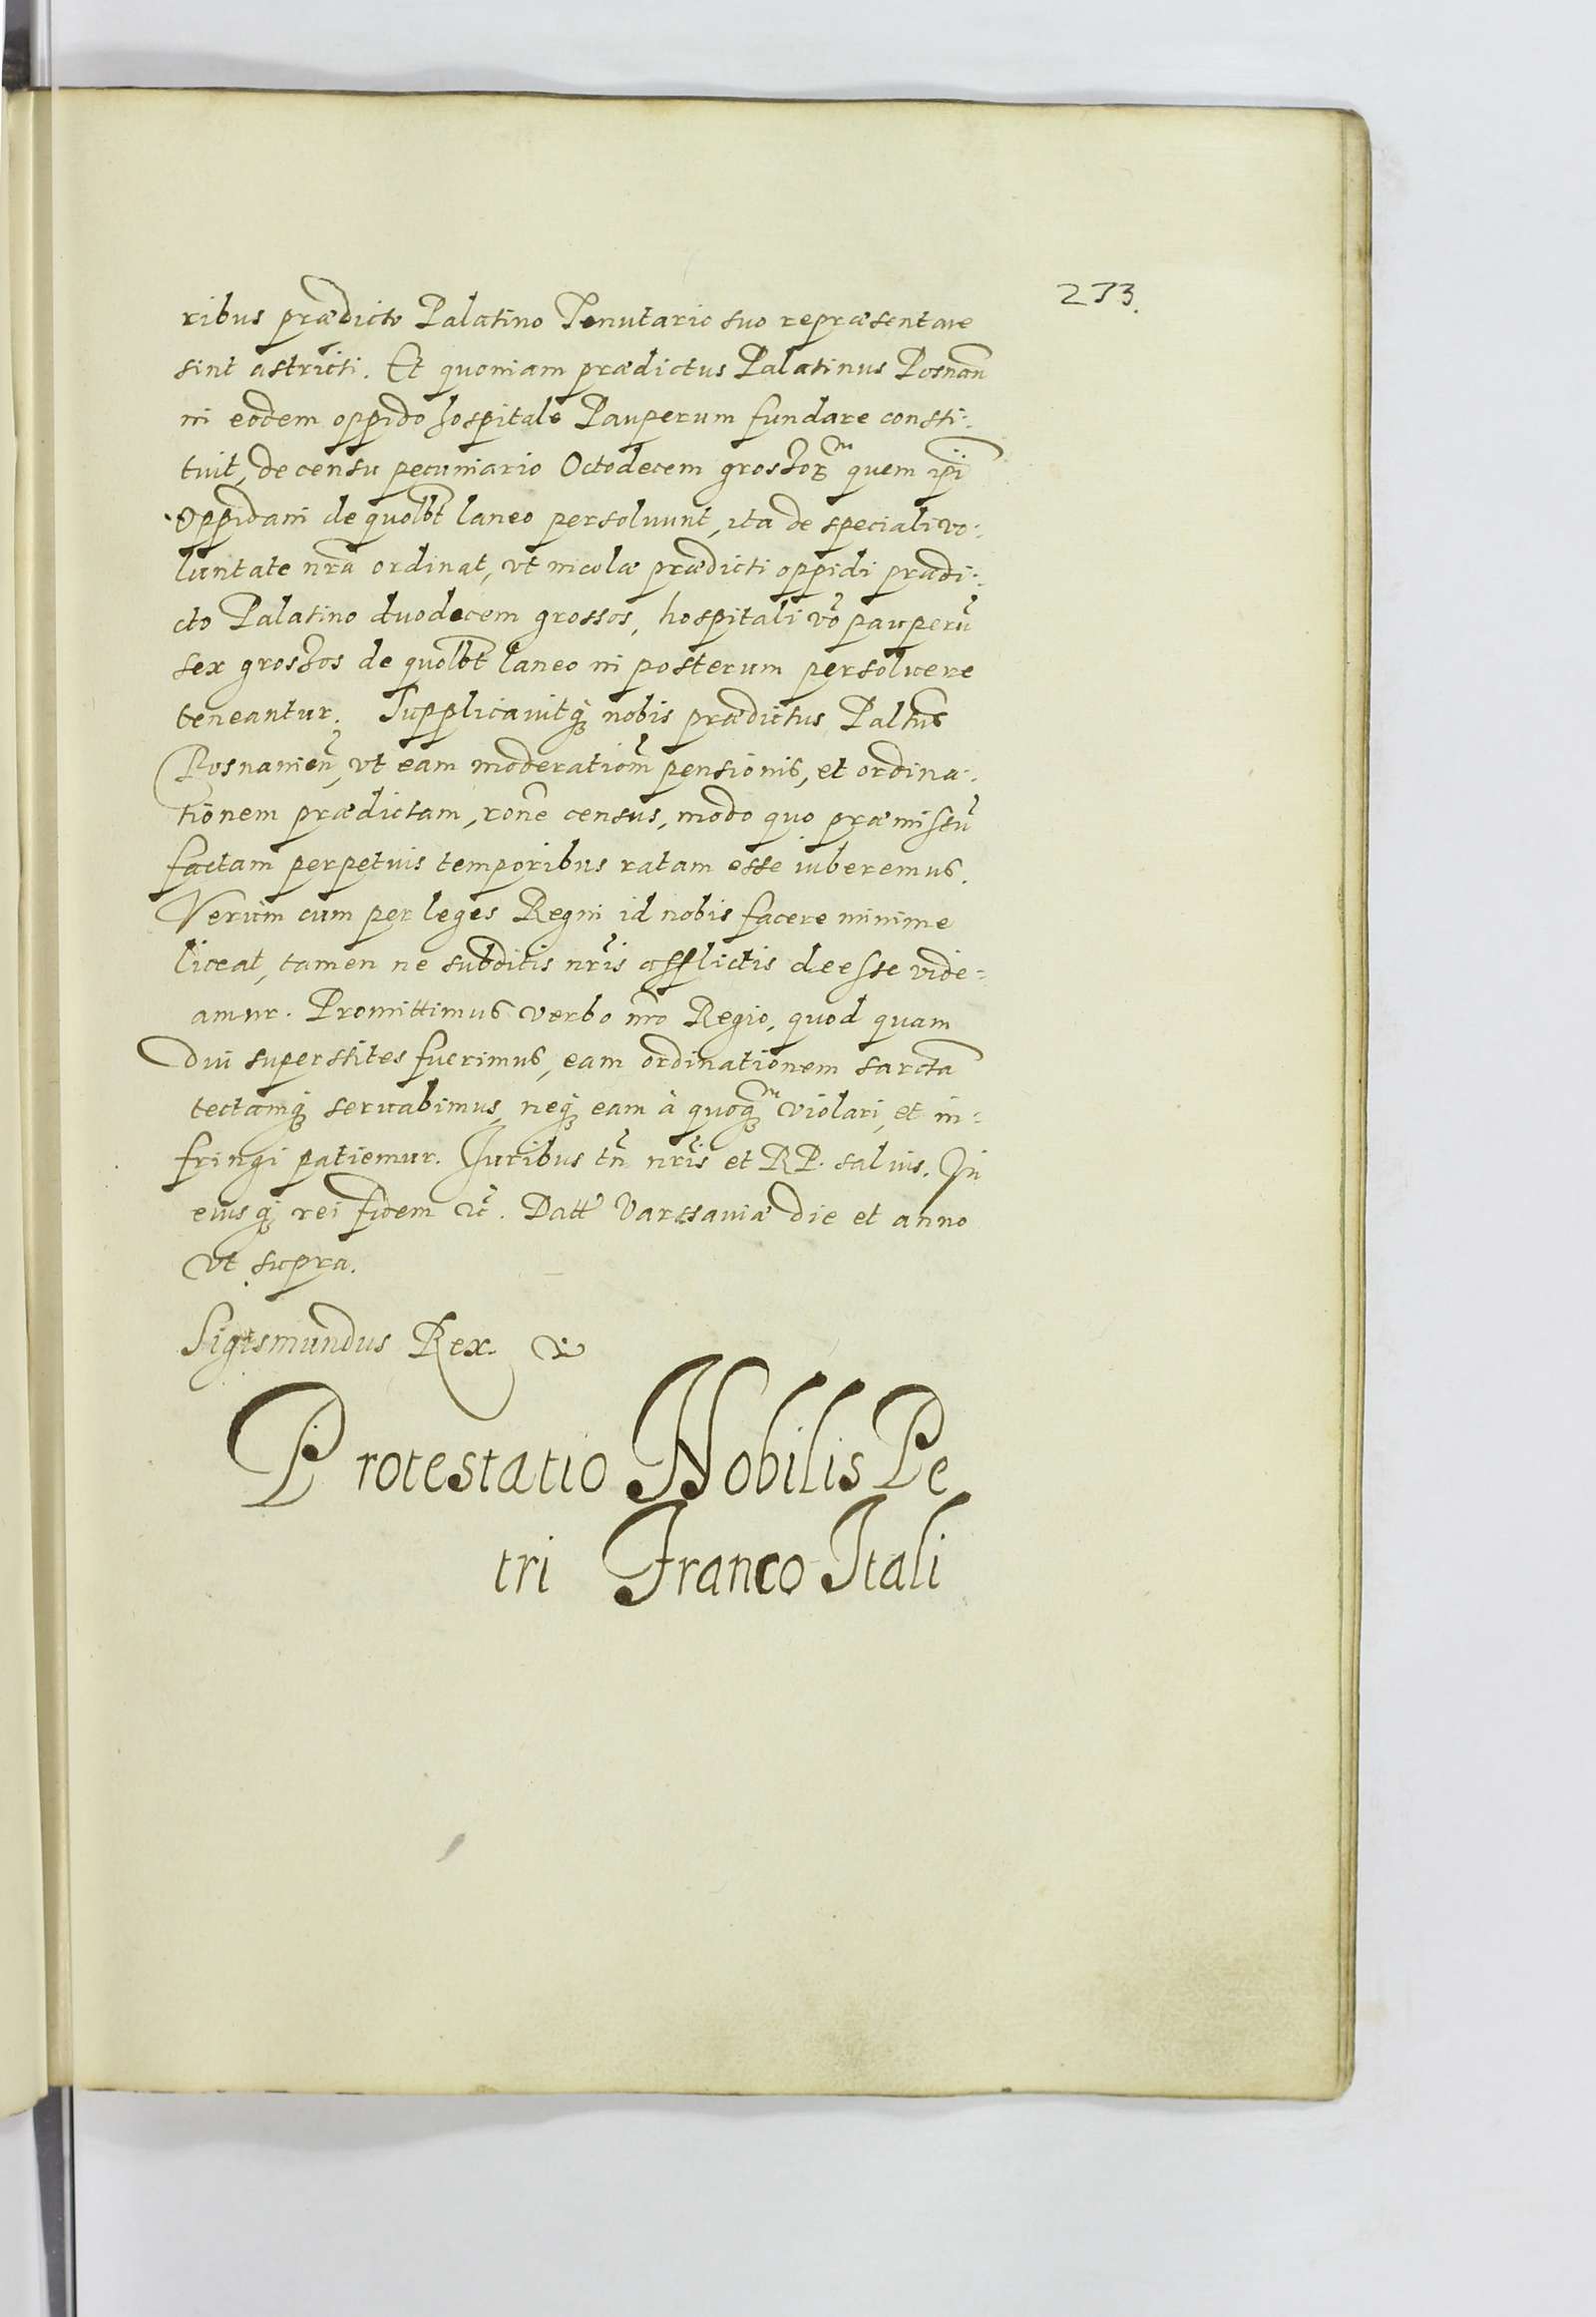 233.
ribus prædicto Palatino Tenutario suo repræsentare
sint astricti. Et quoniam prædictus Palatinus Posnan̄
in eodem oppido hospitale Pauperum fundare consti:
tuit, de censu pecuniario Octodecem grossorᵐ quem ip̄i
Oppidani de quolb̄t laneo persoluunt, ita de speciali vo:
luntate nr̄a ordinat, vt incolæ prædicti oppidi prædi:
cto Palatino duodecem grossos, hospitali vō pauperū
sex grossos de quolb̄t laneo in posterum persoluere
teneantur. Supplicauitq; nobis prædictus Paltn̄us
Posnanien̄, vt eam moderation̄m pensionis, et ordina:
tionem prædictam, rōne census, modo quo præmissū
factam perpetuis temporibus ratam esse iuberemus.
Verum cum per leges Regni id nobis facere minime
liceat, tamen ne subditis nr̄is afflictis deesse vide=
amur. Promittimus verbo nr̄o Regio, quod quam
diu superstites fuerimus, eam ordinationem sarctā
tectamq; seruabimus, neq; eam à quoq;ᵐ violari, et in=
fringi patiemur. Juribus tn̄ nr̄is et RP. saluis. In
eius q; rei fidem ec̄. Datt Varssauiæ die et anno
vt supra.
Sigismundus Rex.
Protestatio Nobilis Pe
tri Franco Itali